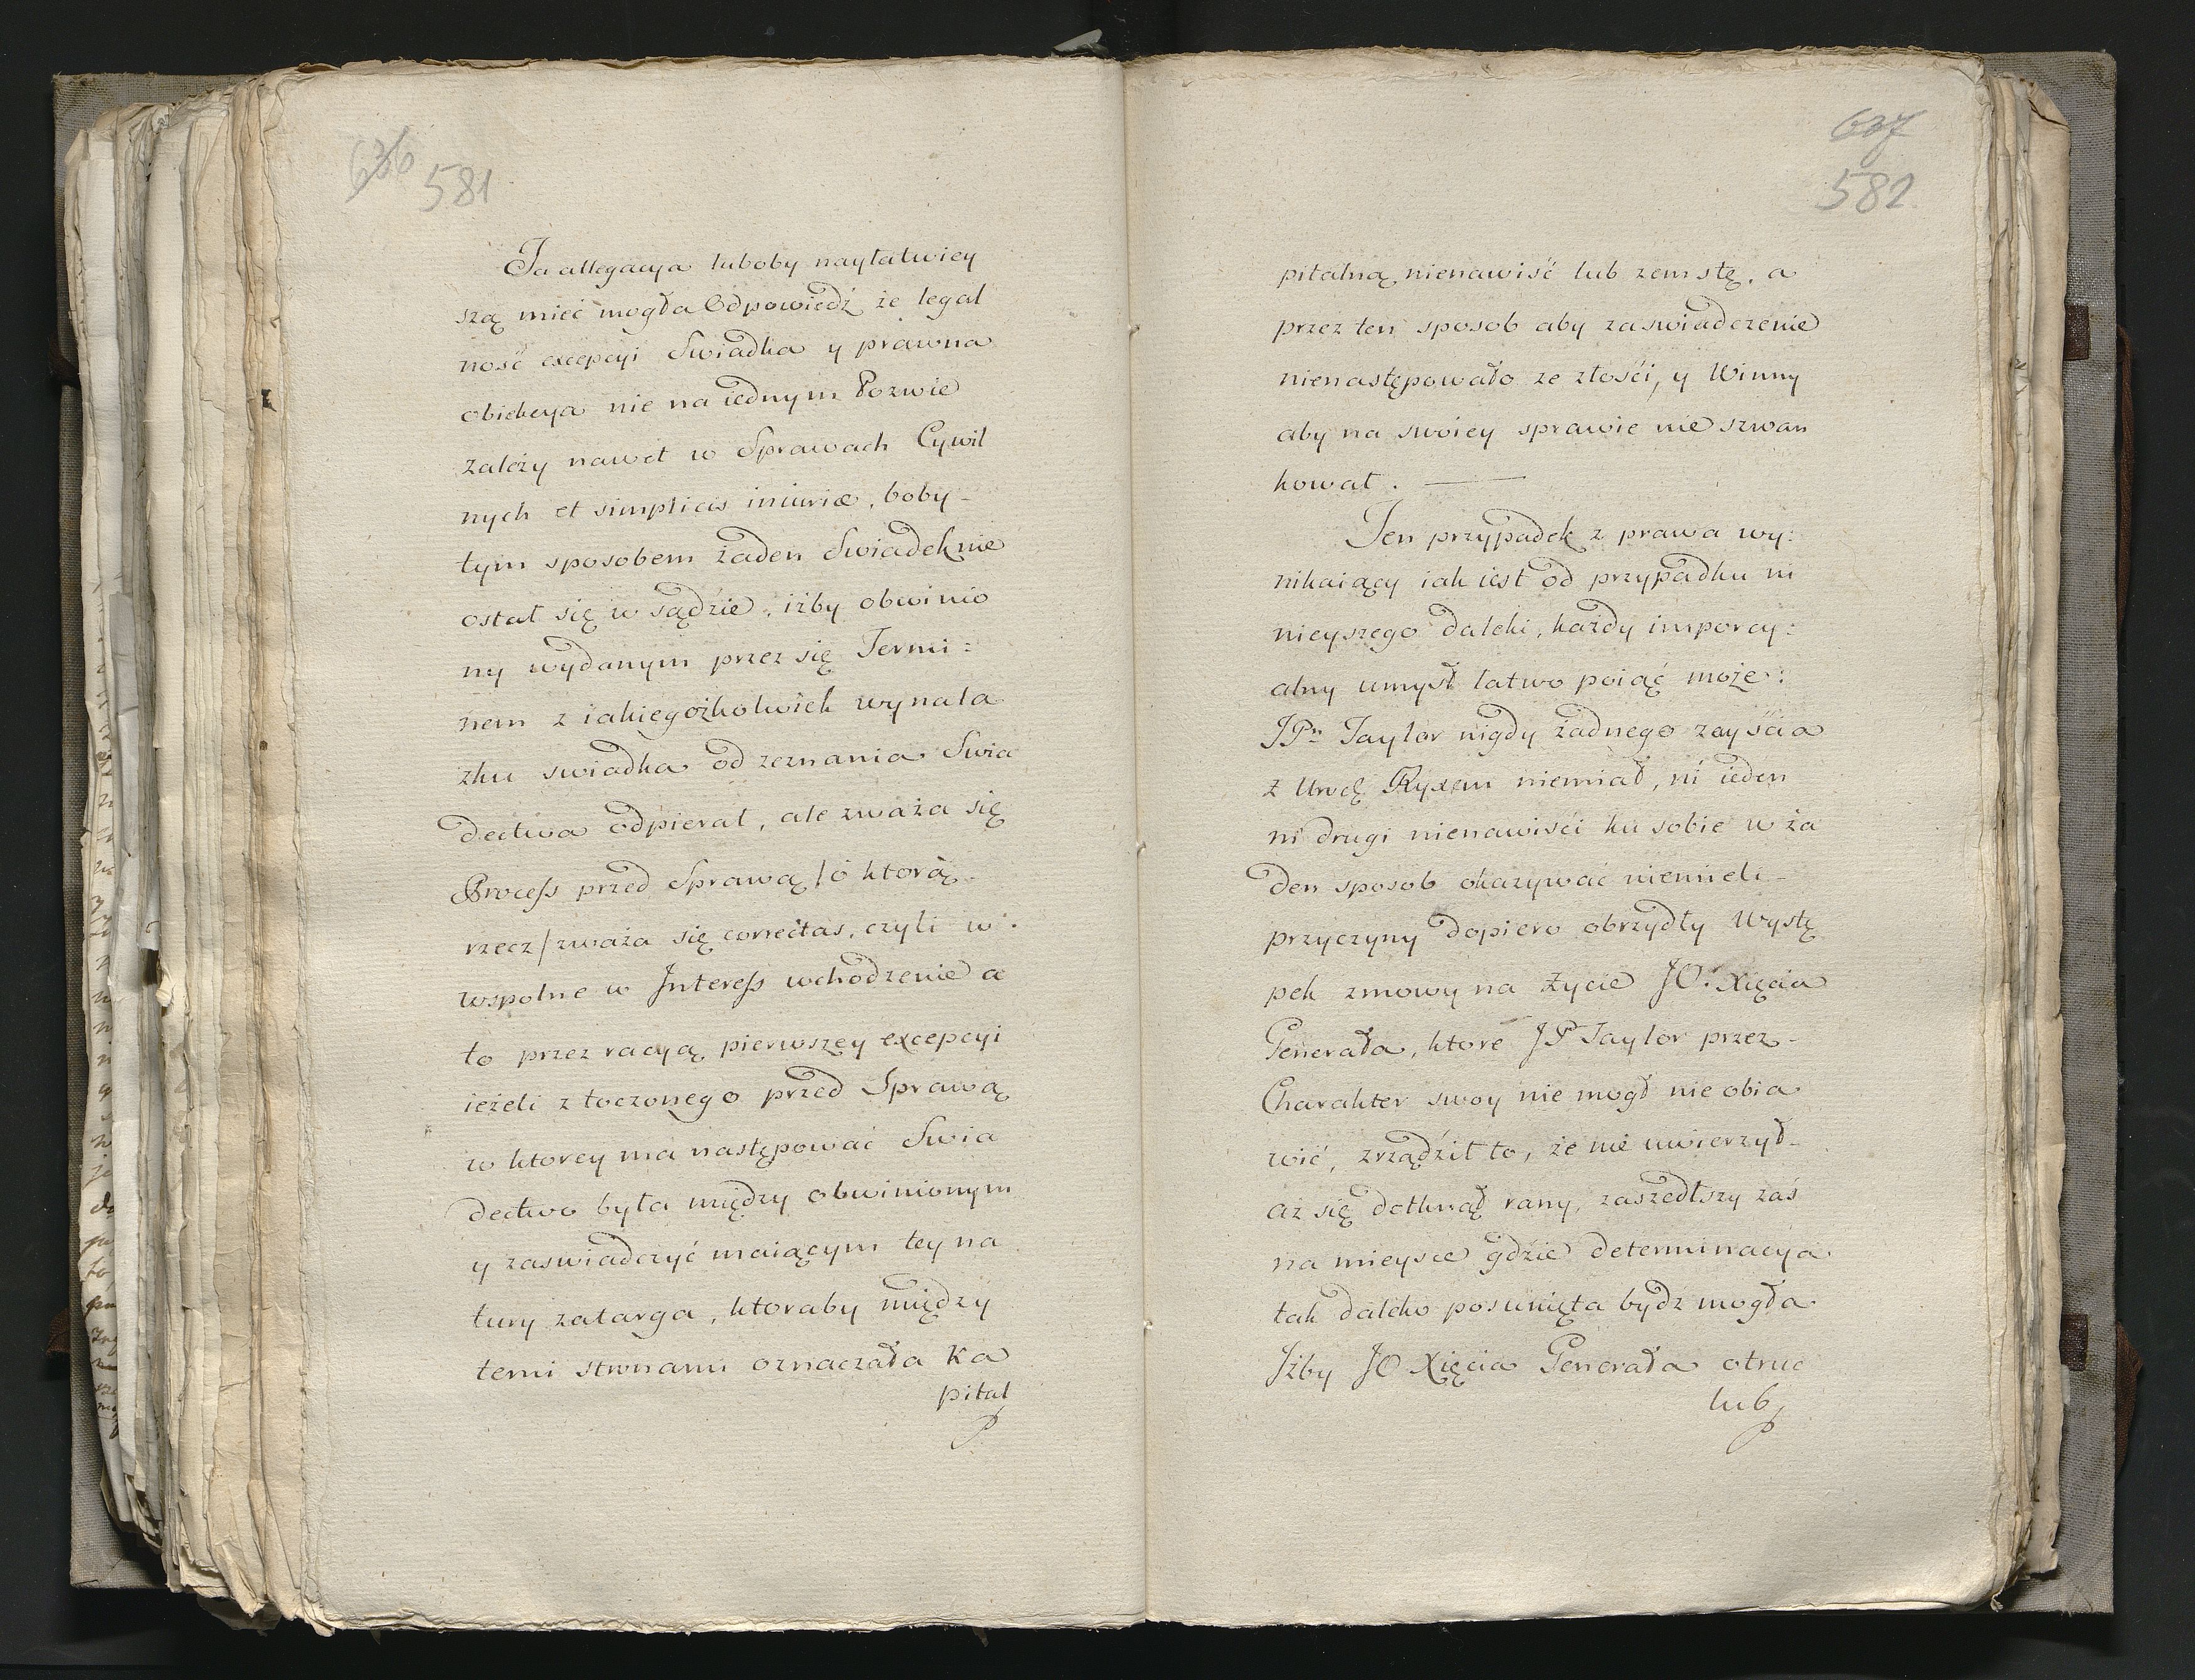 636 581
Ta allegacya luboby nayłatwiey
szą mieć mogła Odpowiedź że legal
ność excepcyi Swiadka y prawna
obiekcya nie na iednym Pozwie
zależy nawet w Sprawach Cywil
nych et simplicis iniuriæ, boby-
tym sposobem żaden Swiadek nie
ostał się w sądzie, iżby obwinio
ny wydanym przez się Termi=
nem z iakiegożkolwiek wynala
zku swiadka od zeznania Swia
dectwa odpierał, ale zważa się
Process przed Sprawą /o ktorą-
rzecz/ zważa się correitas, czyli w
wspolne w Interess wchodzenie a
to przez racyą pierwszey excepcyi
ieżeli z toczonego przed Sprawą
w ktorey ma następować Swia
dectwo była między obwinionym
y zaswiadczyć maiącym tey na
tury zatarga, ktoraby między
temi stronami oznaczała Ka
pital
637
582
pitalną nienawiść lub zemstę. a
przez ten sposob aby zaswiadczenie
nienastępowało ze złości, y Winny
aby na swoiey sprawie nie szwan
kował. —
Ten przypadek z prawa wy:
nikaiący iak iest od przypadku ni
nieyszego daleki, każdy imparcy:
alny umysł łatwo poiąć może:
JPn Taylor nigdy żadnego zayścia
z Urodz Ryxem niemiał, ni ieden
ni drugi nienawiści ku sobie w ża
den sposob okazywać niemieli-
przyczyny dopiero obrzydły Wystę
pek zmowy na życie JO. Xięcia
Generała, ktore JP Taylor przez-
Charakter swoy nie mogł nie obia
wić, zrządził to, że nie uwierzył-
aż się dotknął rany, zaszedłszy zaś
na mieysce gdzie determinacya
tak daleko posunięta bydz mogła
Jżby JO Xięcia Generała otruc
lub